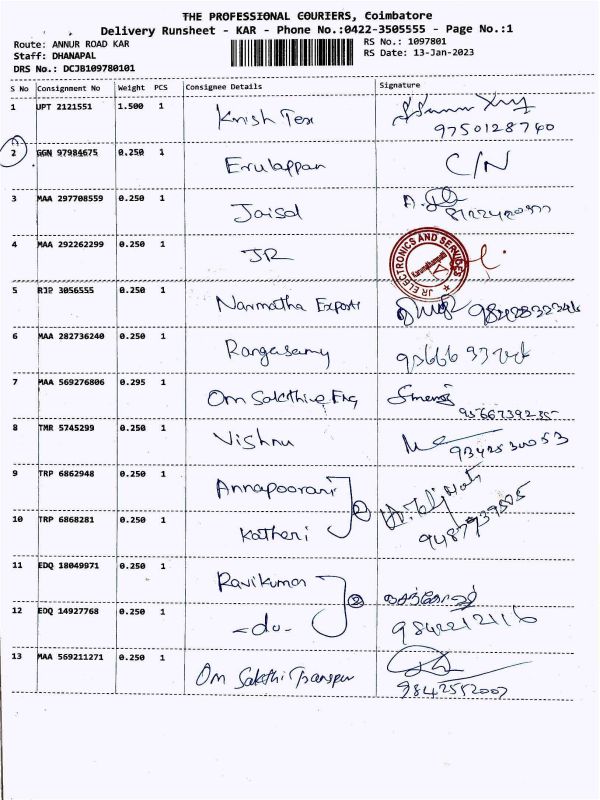 THE PROFESSIONAL COURIERS, Coimbatore
Delivery Runsheet - KAR - Phone No.:0422-3505555 - Page No.:1
Route: ANNUR ROAD KAR
RS No.: 1097801
Staff: DHANAPAL
RS Date: 13-Jan-2023
DRS No.: DCJB109780101
S No Consignment No Weight PCS Consignee Details Signature
1 UPT 2121551 1.500 1 Krish Tex
9750128740
2 GGN 97984675 0.250 1 Erulappan C/N
3 MAA 297708559 0.250 1 Jaisol
4 MAA 292262299 0.250 1 JR
JR ELECTRONICS AND SERVICES
5 RJP 3056555 0.250 1 Narmatha Exports
6 MAA 282736240 0.250 1 Rangasamy
7 MAA 569276806 0.295 1 Om Sakthi Eng
8 TMR 5745299 0.250 1 Vishnu
9342530053
9 TRP 6862948 0.250 1 Annapoorani
2
10 TRP 6868281 0.250 1 Katheri
9487939505
11 EDQ 18049971 0.250 1 Ravikumar
2
12 EDQ 14927768 0.250 1 -do-
9842212116
13 MAA 569211271 0.250 1 Om Sakthi Transpur
9842552007